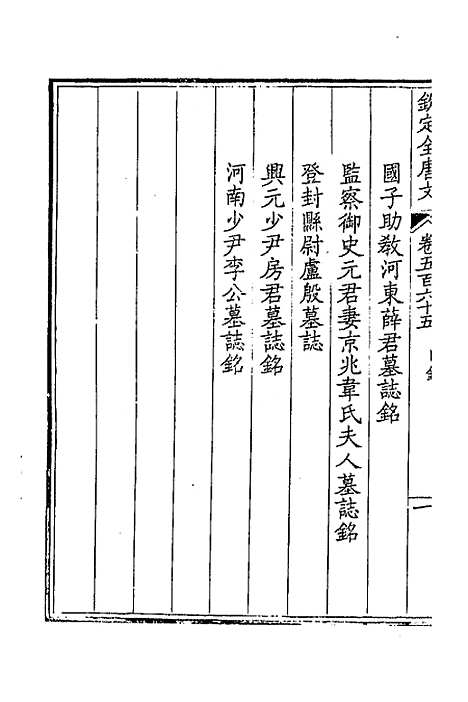 欽定全唐文 卷五百六十五 目錄 一
國子助教河東薛君墓誌銘
監察御史元君妻京兆韋氏夫人墓誌銘
登封縣尉盧殷墓誌
興元少尹房君墓誌銘
河南少尹李公墓誌銘